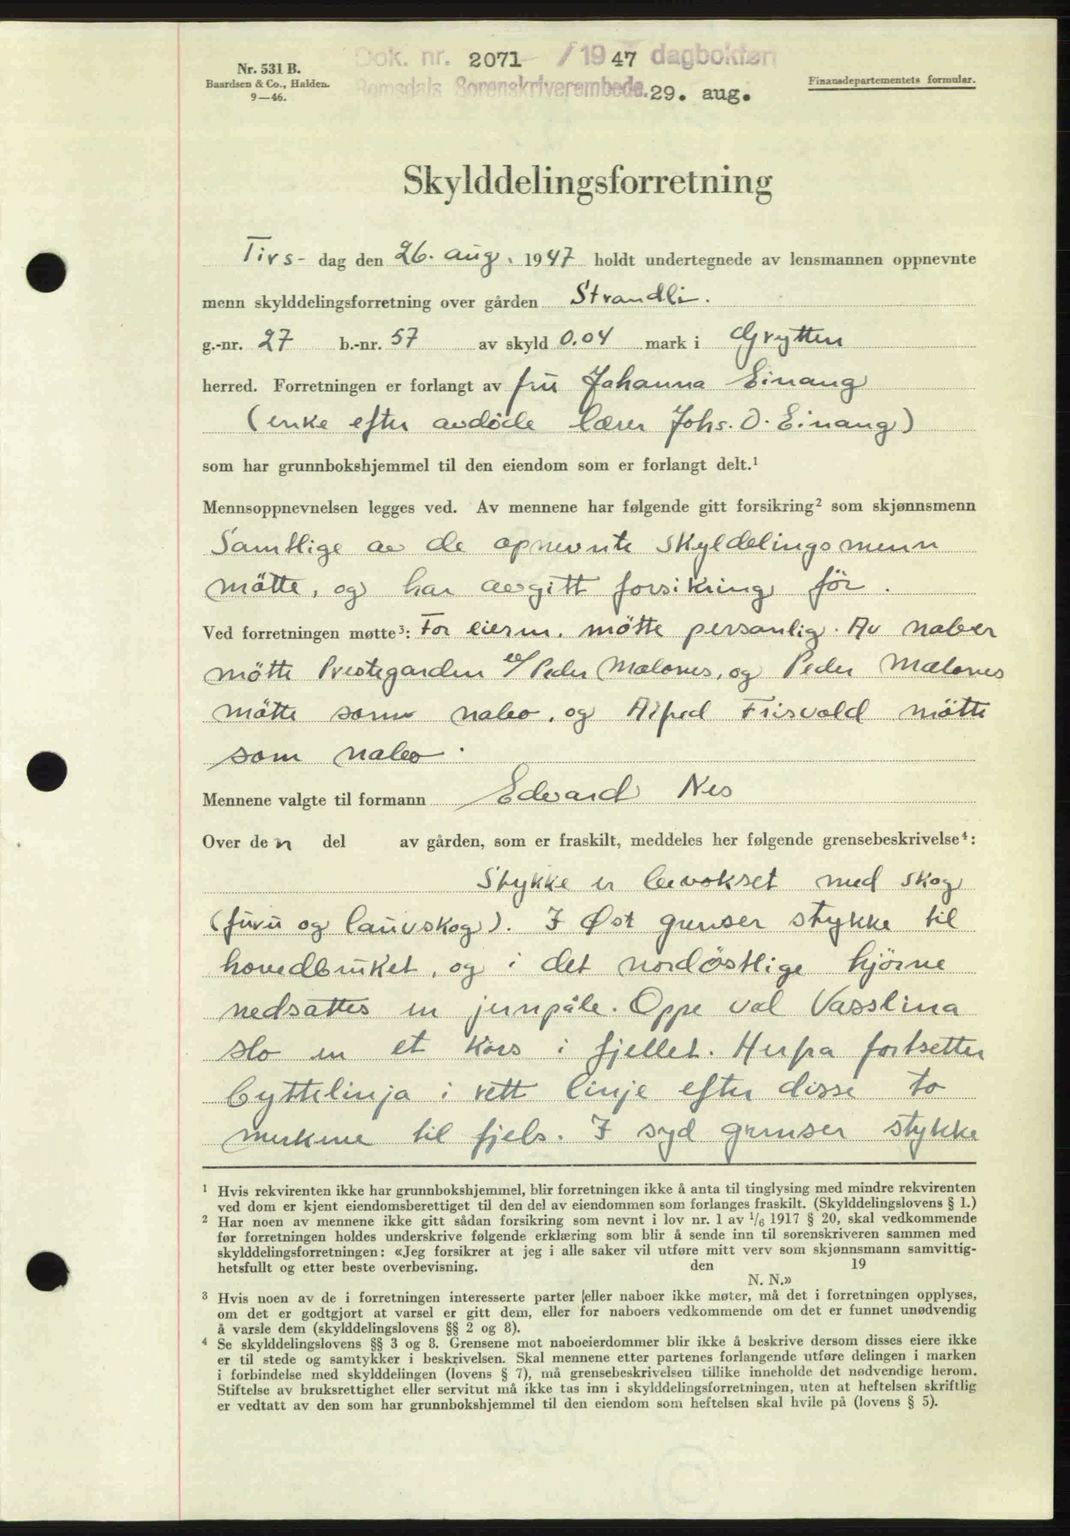 Nr. 531 B.
Baardsen & Co., Halden.
9—46.
Dok. nr. 2071 / 1947 dagboken
Romsdals Sorenskriverembede. 29. aug.
Finansdepartementets formular.
Skylddelingsforretning
Tirs- dag den 26. aug. 1947 holdt undertegnede av lensmannen oppnevnte
menn skylddelingsforretning over gården Strandli.
g.-nr. 27 b.-nr. 57 av skyld 0.04 mark i Grytten
herred. Forretningen er forlangt av fru Johanna Einang
(enke efter avdøde lærer Johs. O. Einang)
som har grunnbokshjemmel til den eiendom som er forlangt delt.¹
Mennsoppnevnelsen legges ved. Av mennene har følgende gitt forsikring² som skjønnsmenn
Samtlige av de opnevnte skyldelingsmenn
møtte, og har avgitt forsikring før.
Ved forretningen møtte³: For eieren møtte personlig. Av naboer
møtte Prestegarden v/ Peder Mælanes, og Peder Mælanes
møtte som nabo, og Alfred Frisvold møtte
som nabo.
Mennene valgte til formann Edvard Nes
Over den del av gården, som er fraskilt, meddeles her følgende grensebeskrivelse⁴:
Stykke er bevokset med skog
(furu og lauvskog). I Øst grenser stykke til
hovedbruket, og i det nordøstlige hjørne
nedsattes en jernpåle. Oppe ved Vasslina
slo en et kors i fjellet. Herfra fortsetter
byttelinja i rett linje efter disse to
merkene til fjels. I syd grenser stykke
¹ Hvis rekvirenten ikke har grunnbokshjemmel, blir forretningen ikke å anta til tinglysing med mindre rekvirenten
ved dom er kjent eiendomsberettiget til den del av eiendommen som forlanges fraskilt. (Skylddelingslovens § 1.)
² Har noen av mennene ikke gitt sådan forsikring som nevnt i lov nr. 1 av 1/6 1917 § 20, skal vedkommende
før forretningen holdes underskrive følgende erklæring som blir å sende inn til sorenskriveren sammen med
skylddelingsforretningen: «Jeg forsikrer at jeg i alle saker vil utføre mitt verv som skjønnsmann samvittig-
hetsfullt og etter beste overbevisning. den 19
N. N.»
³ Hvis noen av de i forretningen interesserte parter eller naboer ikke møter, må det i forretningen opplyses,
om det er godtgjort at varsel er gitt dem, eller for naboers vedkommende om det er funnet unødvendig
å varsle dem (skylddelingslovens §§ 2 og 8).
⁴ Se skylddelingslovens §§ 3 og 8. Grensene mot naboeierdommer blir ikke å beskrive dersom disses eiere ikke
er til stede og samtykker i beskrivelsen. Skal mennene etter partenes forlangende utføre delingen i marken
i forbindelse med skylddelingen (lovens § 7), må grensebeskrivelsen tillike inneholde det nødvendige herom.
Stiftelse av bruksrettighet eller servitut må ikke tas inn i skylddelingsforretningen, uten at heftelsen skriftlig
er vedtatt av den som har grunnbokshjemmel til den eiendom som heftelsen skal hvile på (lovens § 5).